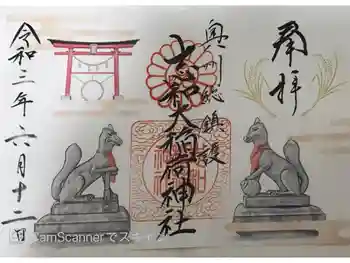 奉拝
奥州総鎮護
志和稲荷神社
令和三年六月十二日
CamScannerでスキャン